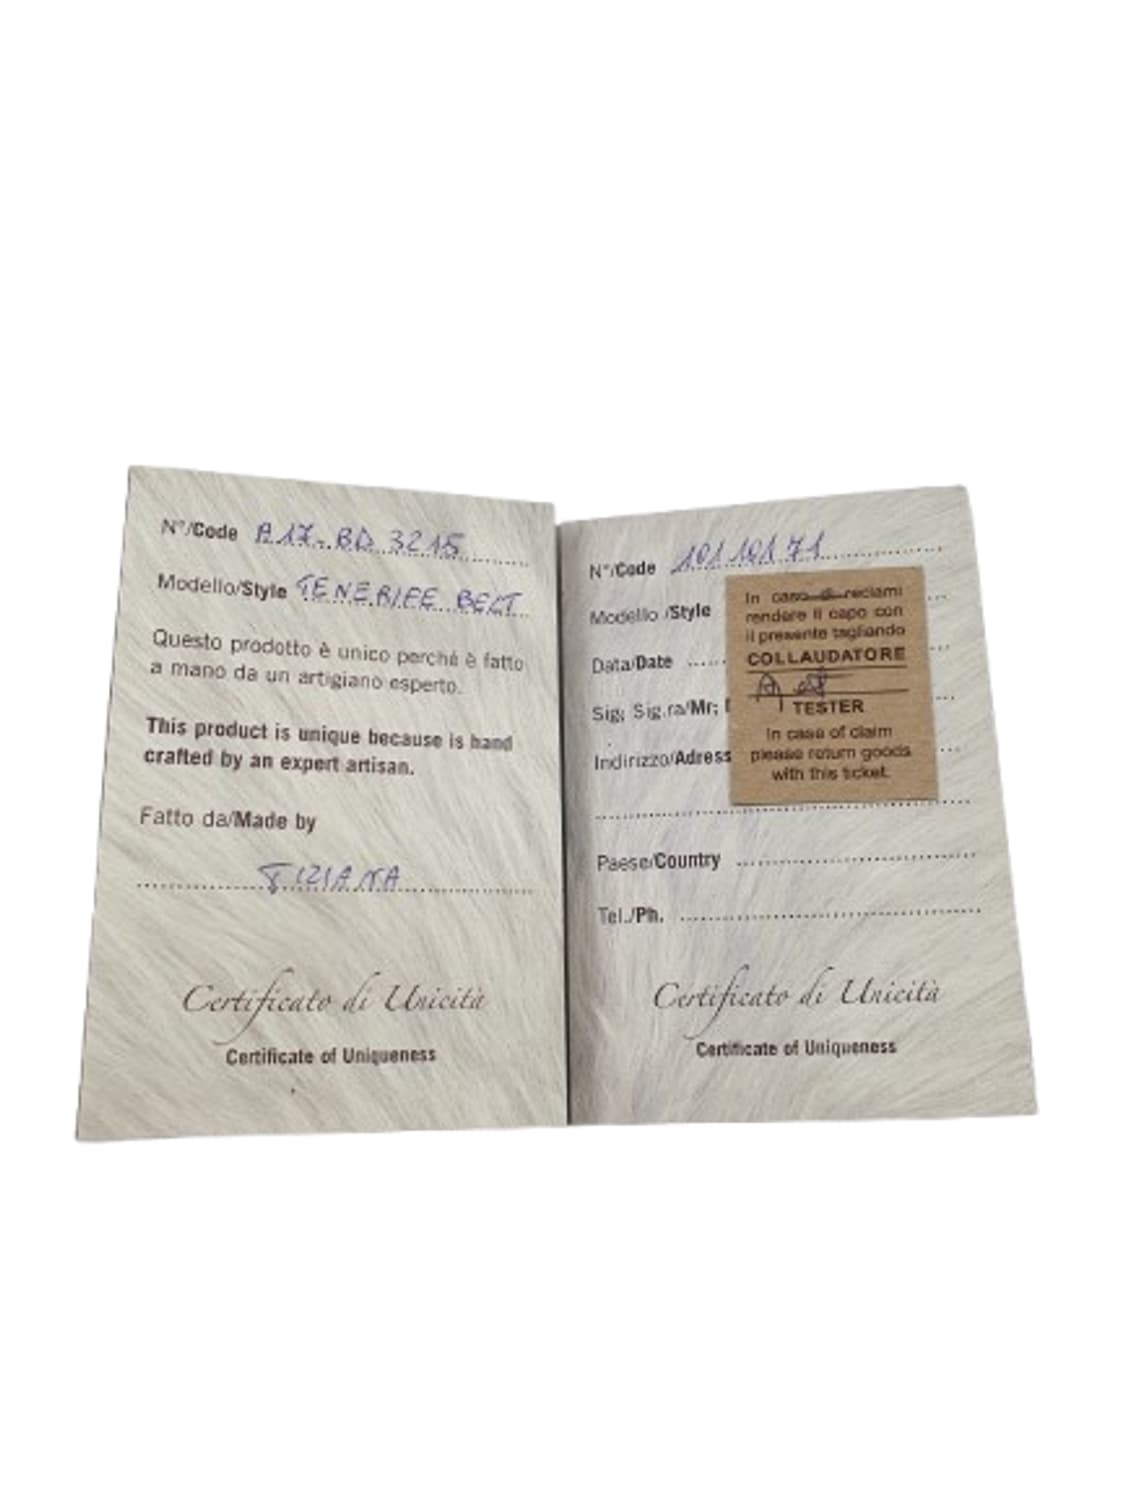 N°/Code A17-BD 3215
Modello/Style TENERIFE BELT
Questo prodotto è unico perché è fatto
a mano da un artigiano esperto.
This product is unique because is hand
crafted by an expert artisan.
Fatto da/Made by
TIZIANA
Certificato di Unicità
Certificate of Uniqueness
N°/Code 10110171
Modello /Style
Data/Date
Sig; Sig.ra/Mr;
Indirizzo/Adress
Paese/Country
Tel./Ph.
Certificato di Unicità
Certificate of Uniqueness
In caso di reclami
rendere il capo con
il presente tagliando
COLLAUDATORE
TESTER
In case of claim
please return goods
with this ticket.